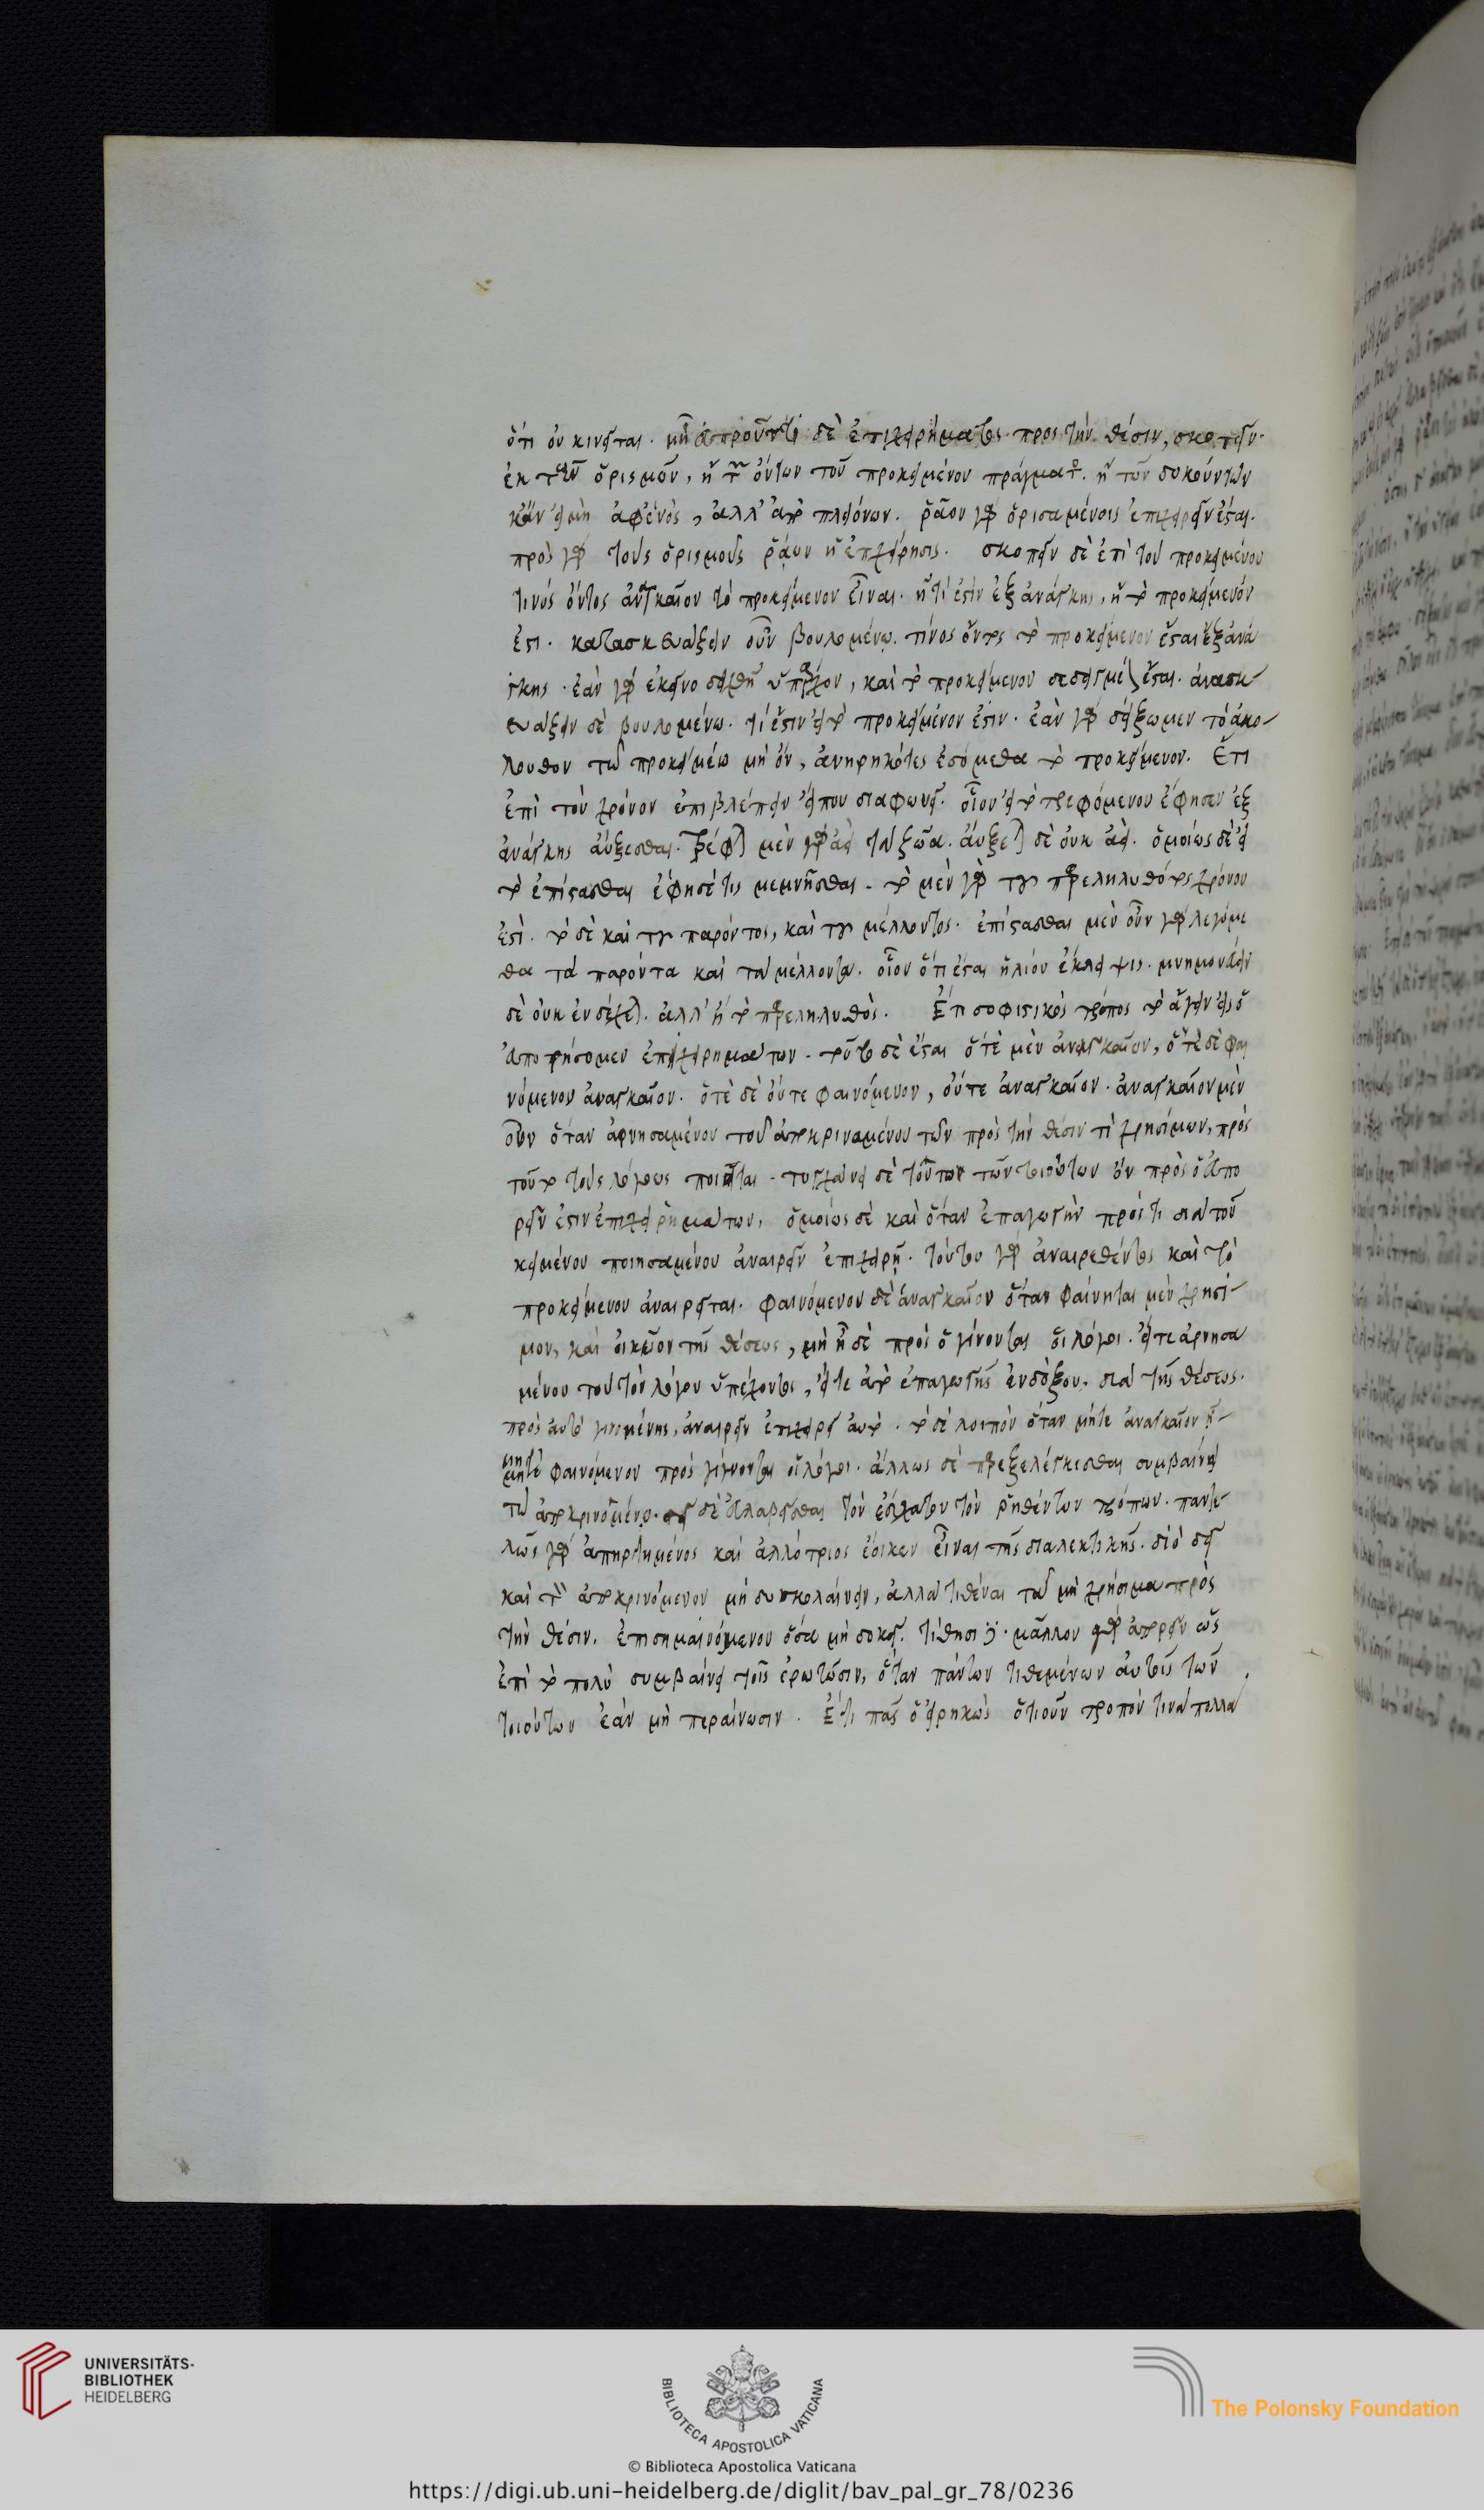 ὅτι οὐ κινεῖται. μὴ εὐποροῦντι δὲ ἐπιχειρήματος πρὸς τὴν θέσιν, σκοπεῖν
ἐκ τῶν ὁρισμῶν, ἢ τῶν ὄντων τοῦ προκειμένου πράγματος. ἢ τῶν δοκούντων
κἂν εἰ μὴ ἀφ' ἑνὸς, ἀλλ' ἀπὸ πλειόνων. ῥᾷον γὰρ ὁρισαμένοις ἐπιχειρεῖν ἔσται.
πρὸς γὰρ τοὺς ὁρισμοὺς ῥᾴων ἡ ἐπιχείρησις. σκοπεῖν δὲ ἐπὶ τοῦ προκειμένου
τινός ὄντος ἀναγκαῖον τὸ προκείμενον εἶναι. ἢ τί ἐστιν ἐξ ἀνάγκης, ἢ τὸ προκείμενόν
ἐστι. κατασκευάζειν οὖν βουλομένῳ. τίνος ὄντος τὸ προκείμενον ἔσται ἐξ ἀνά
γκης. ἐὰν γὰρ ἐκεῖνο δειχθῇ ὑπάρχον, καὶ τὸ προκείμενον δεδειγμένον ἔσται. ἀνασκ
ευάζειν δὲ βουλομένῳ. τί ἔστιν εἰ τὸ προκείμένον ἐστιν. ἐὰν γὰρ δείξωμεν τὸ ἀκό-
λουθον τῷ προκειμένῳ μὴ ὂν, ἀνῃρηκότες ἐσόμεθα τὸ προκείμενον. Ἔτι
ἐπὶ τὸν χρόνον ἐπιβλέπειν εἴ που διαφωνεῖ. οἷον εἰ τὸ τρεφόμενον ἔφησεν ἐξ
ἀνάγκης αὔξεσθαι. τρέφεται μὲν γὰρ ἀεὶ τὰ ζῶα. αὔξεται δὲ οὐκ ἀεὶ. ὁμοίως δὲ εἰ
τὸ ἐπίστασθαι ἔφησέ τις μεμνῆσθαι. τὸ μὲν γὰρ τοῦ παρεληλυθότος χρόνου
ἐστὶ. τὸ δὲ καὶ τοῦ παρόντος, καὶ τοῦ μέλλοντος. ἐπίστασθαι μὲν οὖν γὰρ λεγόμε
θα τὰ παρόντα καὶ τὰ μέλλοντα. οἷον ὅτι ἔσται ἡλίου ἔκλειψις. μνημονεύειν
δὲ οὐκ ἐνδέχεται. ἀλλ' ἢ τὸ παρεληλυθὸς. Ἔτι σοφιστικὸς τρόπος τὸ ἄγειν εἰς ὃ
εὐπορήσομεν ἐπιχειρημάτων. τοῦτο δὲ ἔσται ὁτὲ μὲν ἀναγκαῖον, ὁτὲ δὲ φαι
νόμενον ἀναγκαῖον. ὁτὲ δὲ οὔτε φαινόμενον, οὔτε ἀναγκαῖον. ἀναγκαῖον μὲν
οὖν ὅταν ἀρνησαμένου τοῦ ἀποκριναμένου τῶν πρὸς τὴν θέσιν τὶ χρησίμων, πρὸς
τοῦτο τοὺς λόγους ποιῆται. τυγχάνει δὲ τοῦτον τῶν τοιούτων ὂν πρὸς ὃ εὐπο
ρεῖν ἐστιν ἐπιχειρημάτων. ὁμοίως δὲ καὶ ὅταν ἐπαγωγὴν πρός τι διὰ τοῦ
κειμένου ποιησαμένου ἀναιρεῖν ἐπιχειρῇ. τούτου γὰρ ἀναιρεθέντος καὶ τὸ
προκείμενον ἀναιρεῖται. φαινόμενον δὲ ἀναγκαῖον ὅταν φαίνηται μὲν χρήσι-
μον, καὶ οἰκεῖον τῆς θέσεως, μὴ ἦ δὲ πρὸς ὃ γίνονται οἱ λόγοι. εἴτε ἀρνησα
μένου τοῦ τὸν λόγον ὑπέχοντος, εἴτε ἀπὸ ἐπαγωγῆς ἐνδόξου, διὰ τῆς θέσεως.
πρὸς αὐτὸ γινομένης, ἀναιρεῖν ἐπιχειρεῖ αὐτὸ. τὸ δὲ λοιπὸν ὅταν μήτε ἀναγκαῖον ᾖ-
μήτε φαινόμενον πρὸς γίγνονται οἱ λόγοι. ἄλλως δὲ παρεξελέγχεσθαι συμβαίνει
τῷ ἀποκρινομένῳ. δεῖ δὲ εὐλαβεῖσθαι τὸν ἔσχατον τὸν ῥηθέντων τρόπων. παντε
λῶς γὰρ ἀπηρτημένος καὶ ἀλλότριος ἔοικεν εἶναι τῆς διαλεκτικῆς. διὸ δεῖ
καὶ τὸν ἀποκρινόμενον μὴ δυσκολαίνειν, ἀλλὰ τιθέναι τὰ μὴ χρήσιμα πρὸς
τὴν θέσιν. ἐπισημαινόμενον ὅσα μὴ δοκεῖ. τίθησι δὲ. μᾶλλον γὰρ ἀπορεῖν ὡς
ἐπὶ τὸ πολὺ συμβαίνει τοῖς ἐρωτῶσιν, ὅταν πάντων τιθεμένων αὐτοῖς τῶν
τοιούτων ἐὰν μὴ περαίνωσιν. Ἔτι πᾶς ὁ εἰρηκὼς ὁτιοῦν τρόπον τινὰ πολλὰ
UNIVERSITÄTS-
BIBLIOTHEK
HEIDELBERG
BIBLIOTECA APOSTOLICA VATICANA
The Polonsky Foundation
© Biblioteca Apostolica Vaticana
https://digi.ub.uni-heidelberg.de/diglit/bav_pal_gr_78/0236